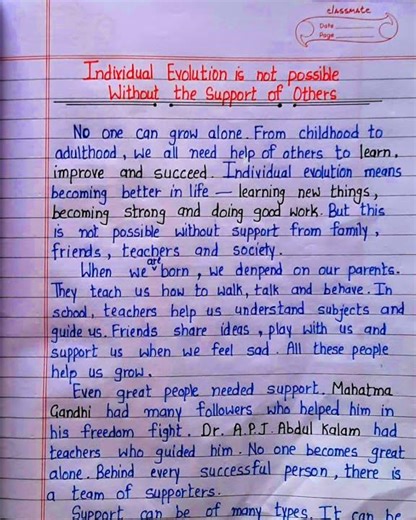 classmate
Date
Page
Individual Evolution is not possible
Without the Support of Others
No one can grow alone. From childhood to
adulthood, we all need help of others to learn,
improve and succeed. Individual evolution means
becoming better in life — learning new things,
becoming strong and doing good work. But this
is not possible without support from family,
friends, teachers and society.
When we are born, we denpend on our parents.
They teach us how to walk, talk and behave. In
school, teachers help us understand subjects and
guide us. Friends share ideas, play with us and
support us when we feel sad. All these people
help us grow.
Even great people needed support. Mahatma
Gandhi had many followers who helped him in
his freedom fight. Dr. A.P.J. Abdul Kalam had
teachers who guided him. No one becomes great
alone. Behind every successful person, there is
a team of supporters.
Support can be of many types. It can be